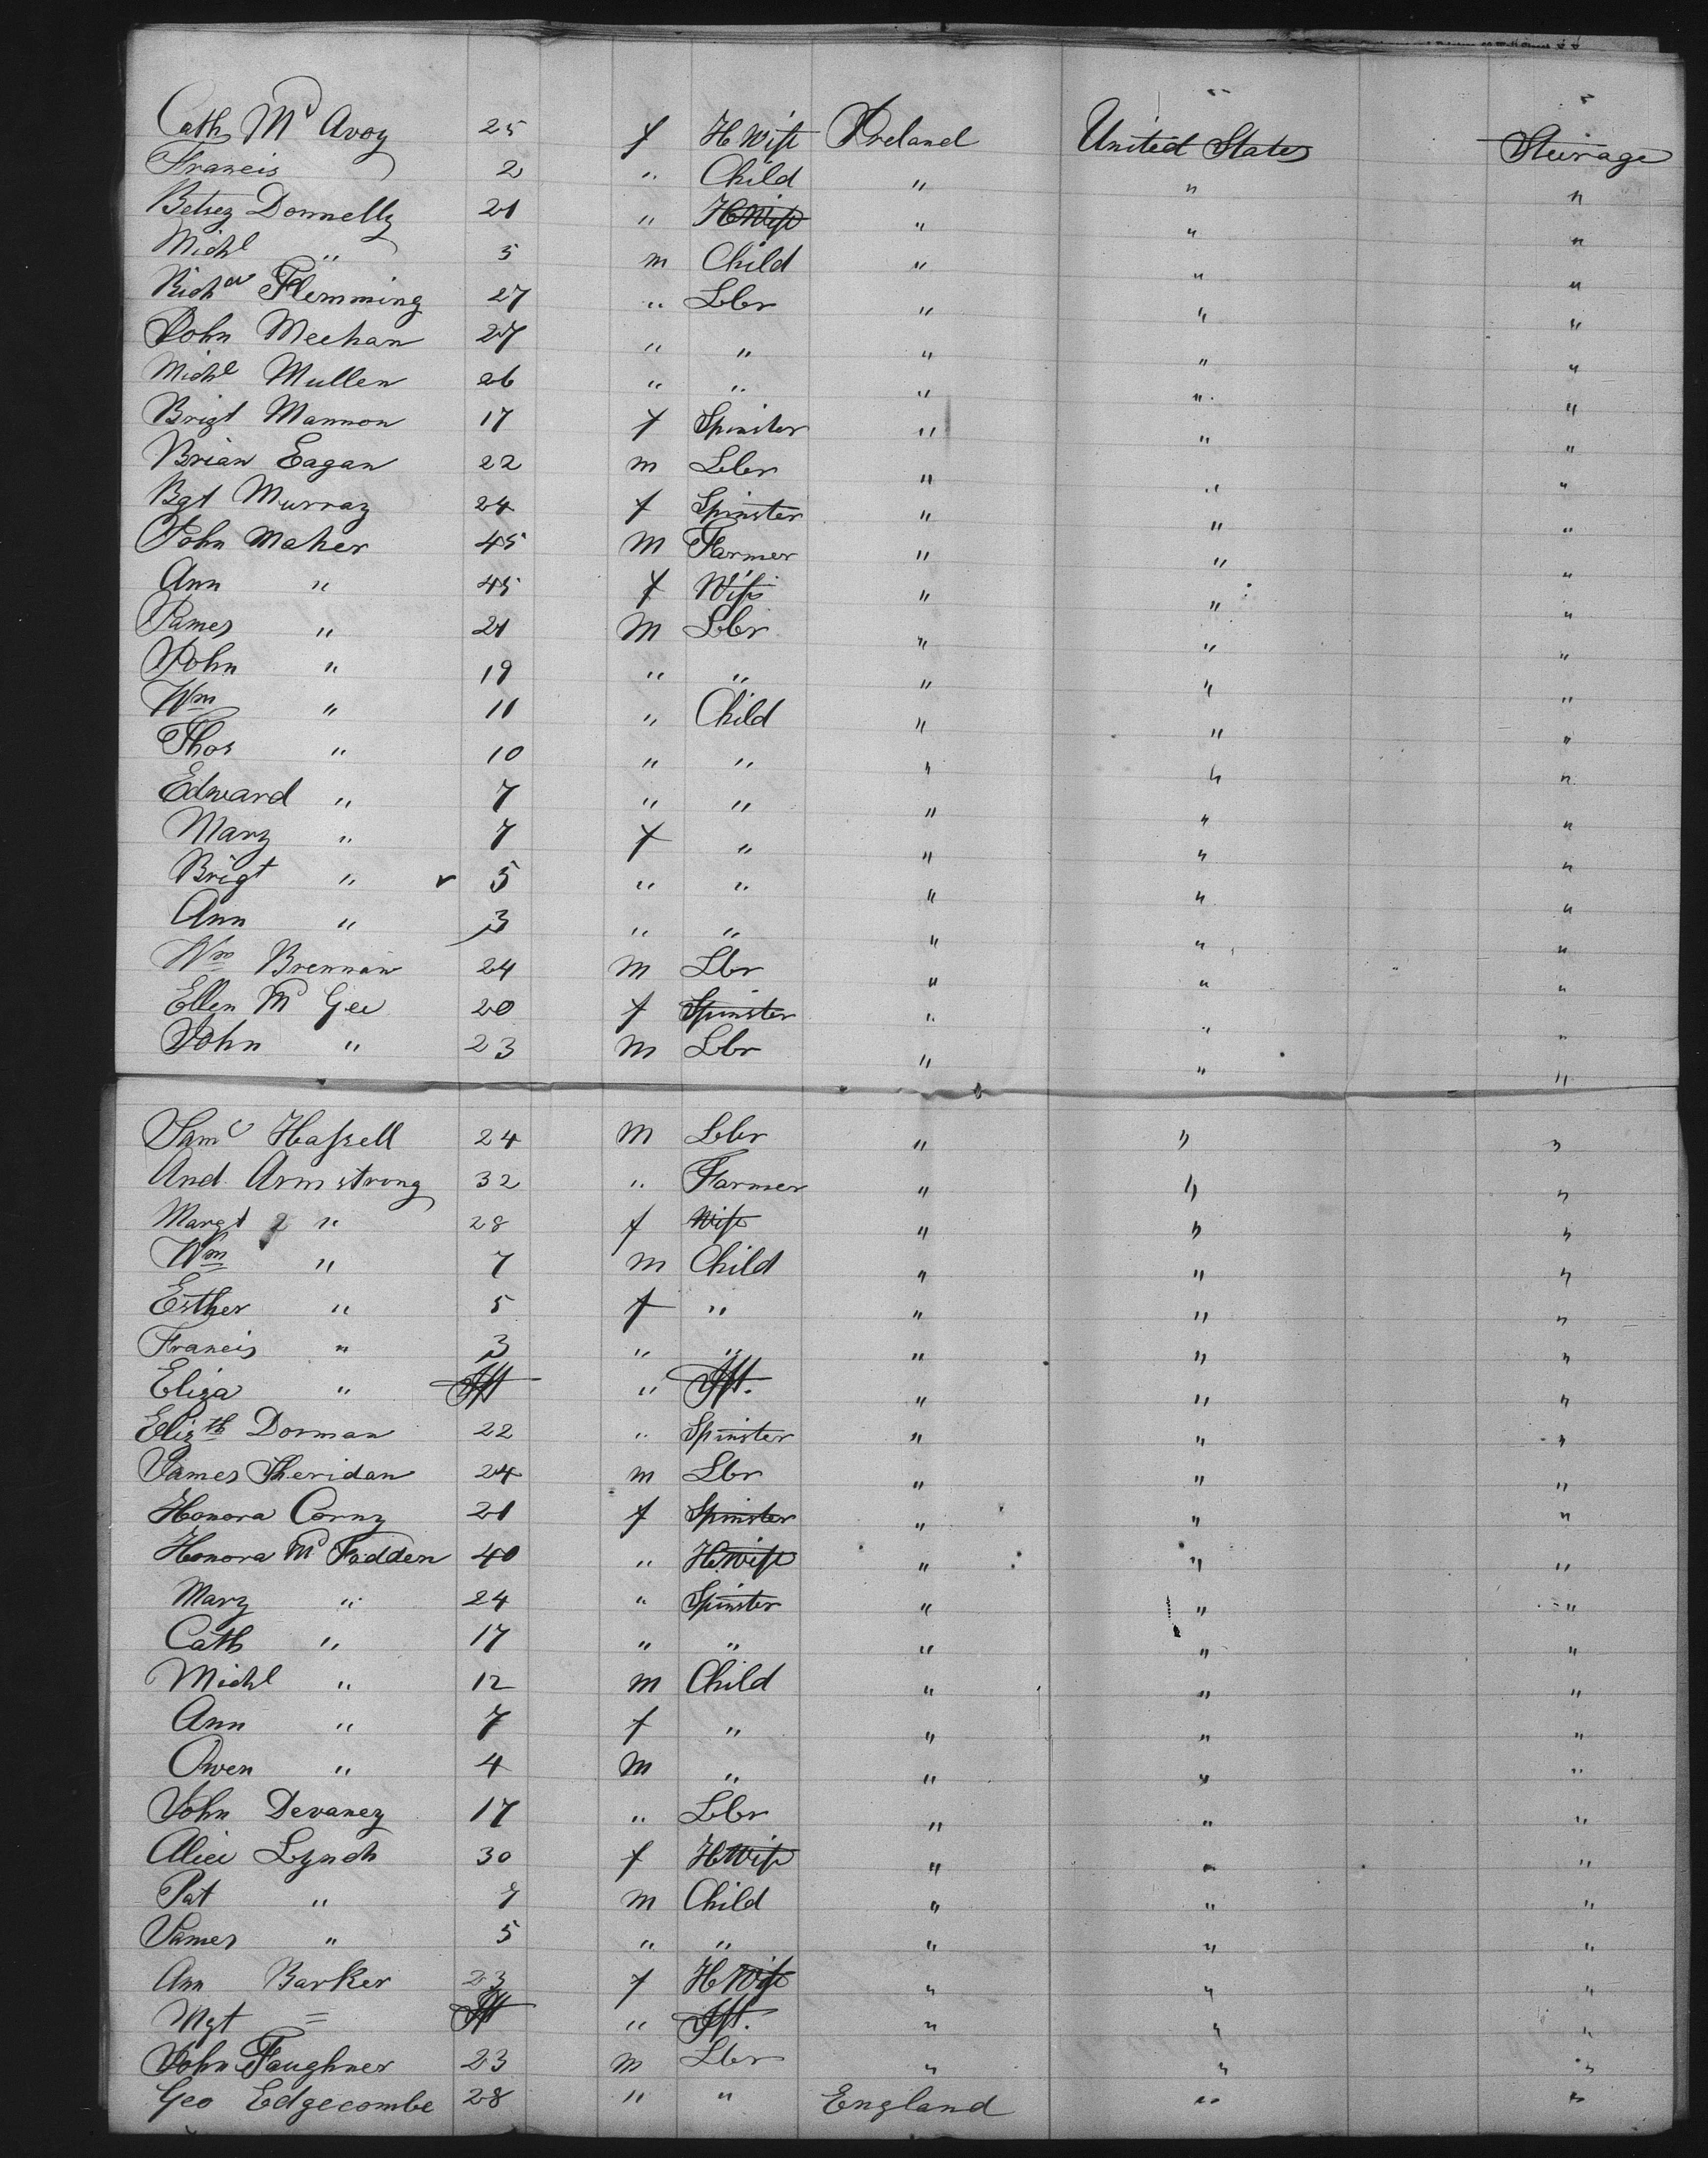 Cath McAvoy 25 f HWife Ireland United States Steerage
Francis 2 " Child " " "
Betsey Donnelly 21 " HWife " " "
Michl " 5 m Child " " "
Richd Flemming 27 " Lbr " " "
John Meehan 27 " " " " "
Michl Mullen 26 " " " " "
Brigt Mannon 17 f Spinster " " "
Brian Eagan 22 m Lbr " " "
Bgt Murray 24 f Spinster " " "
John Maher 45 m Farmer " " "
Ann " 45 f Wife " " "
James " 21 m Lbr " " "
John " 19 " " " " "
Wm " 11 " Child " " "
Thos " 10 " " " " "
Edward " 7 " " " " "
Mary " 7 f " " " "
Brigt " 5 " " " " "
Ann " 3 " " " " "
Wm Brennan 24 m Lbr " " "
Ellen McGee 20 f Spinster " " "
John " 23 m Lbr " " "
Saml Hassell 24 m Lbr " " "
And. Armstrong 32 " Farmer " " "
Margt " 28 f Wife " " "
Wm " 7 m Child " " "
Esther " 5 f " " " "
Francis " 3 " " " " "
Eliza " Ift " Ift. " " "
Elizth Dorman 22 " Spinster " " "
James Sheridan 24 m Lbr " " "
Honora Corny 21 f Spinster " " "
Honora McFadden 40 " H.wife " " "
Mary " 24 " Spinster " " "
Cath " 17 " " " " "
Michl " 12 m Child " " "
Ann " 7 f " " " "
Owen " 4 m " " " "
John Devaney 17 " Lbr " " "
Alice Lynch 30 f HWife " " "
Pat " 7 m Child " " "
James " 5 " " " " "
Ann Barker 23 f HWife " " "
Mgt = Ift " Ift. " " "
John Faughner 23 m Lbr " " "
Geo Edgecombe 28 " " England " "